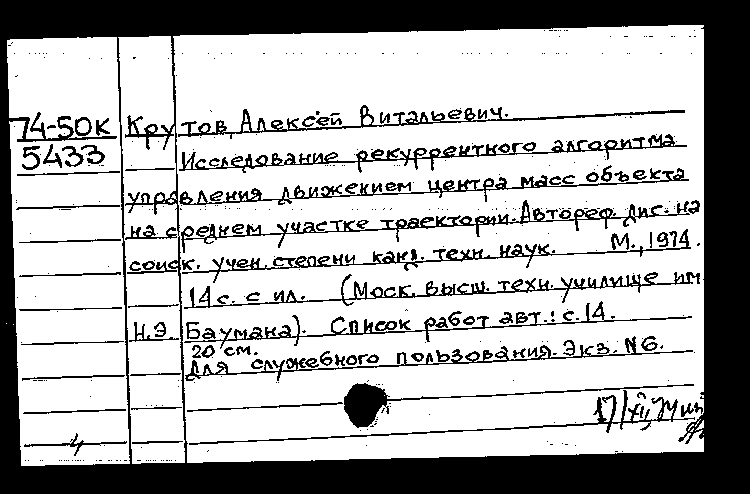 74-50к Крутов, Алексей Витальевич.
5433 Исследование рекуррентного алгоритма
управления движением центра масс объекта
на среднем участке траектории. Автореф. дис. на
соиск. учен. степени канд. техн. наук. М., 1974.
14 с. с ил. (Моск. высш. техн. училище им.
Н.Э. Баумана). Список работ авт.: с. 14.
20 см.
Для служебного пользования. Экз. N6.
17/XII, 74
4